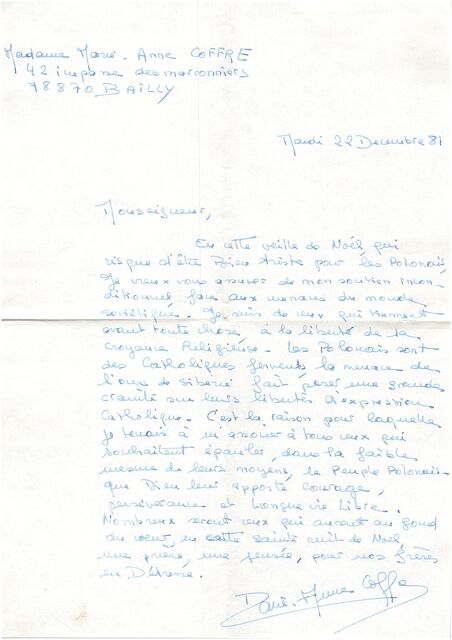 Madame Marie-Anne COFFRE
42 impasse des marronniers
78870 BAILLY
Mardi 22 Decembre 81
Monseigneur,
En cette veille de Noël qui
risque d'être Bien triste pour les Polonais,
Je veux vous assurer de mon soutien incon-
ditionnel face aux menaces du monde
soviétique. Je suis de ceux qui tiennent
avant toute chose, à la liberté de la
croyance Religieuse. Les Polonais sont
des Catholiques fervents la menace de
l'ours de sibérie fait peser une grande
crainte sur leurs libertés d'expression
Catholique. C'est la raison pour laquelle
je tenais à m'associer à tous ceux qui
souhaitent épauler, dans la faible
mesure de leurs moyens, le Peuple Polonais
que Dieu leur apporte courage,
persévérance et Longue vie Libre.
Nombreux seront ceux qui auront au fond
du coeur, en cette sainte nuit de Noël,
une prière, une pensée, pour nos frères
en Détresse.
Marie-Anne Coffre